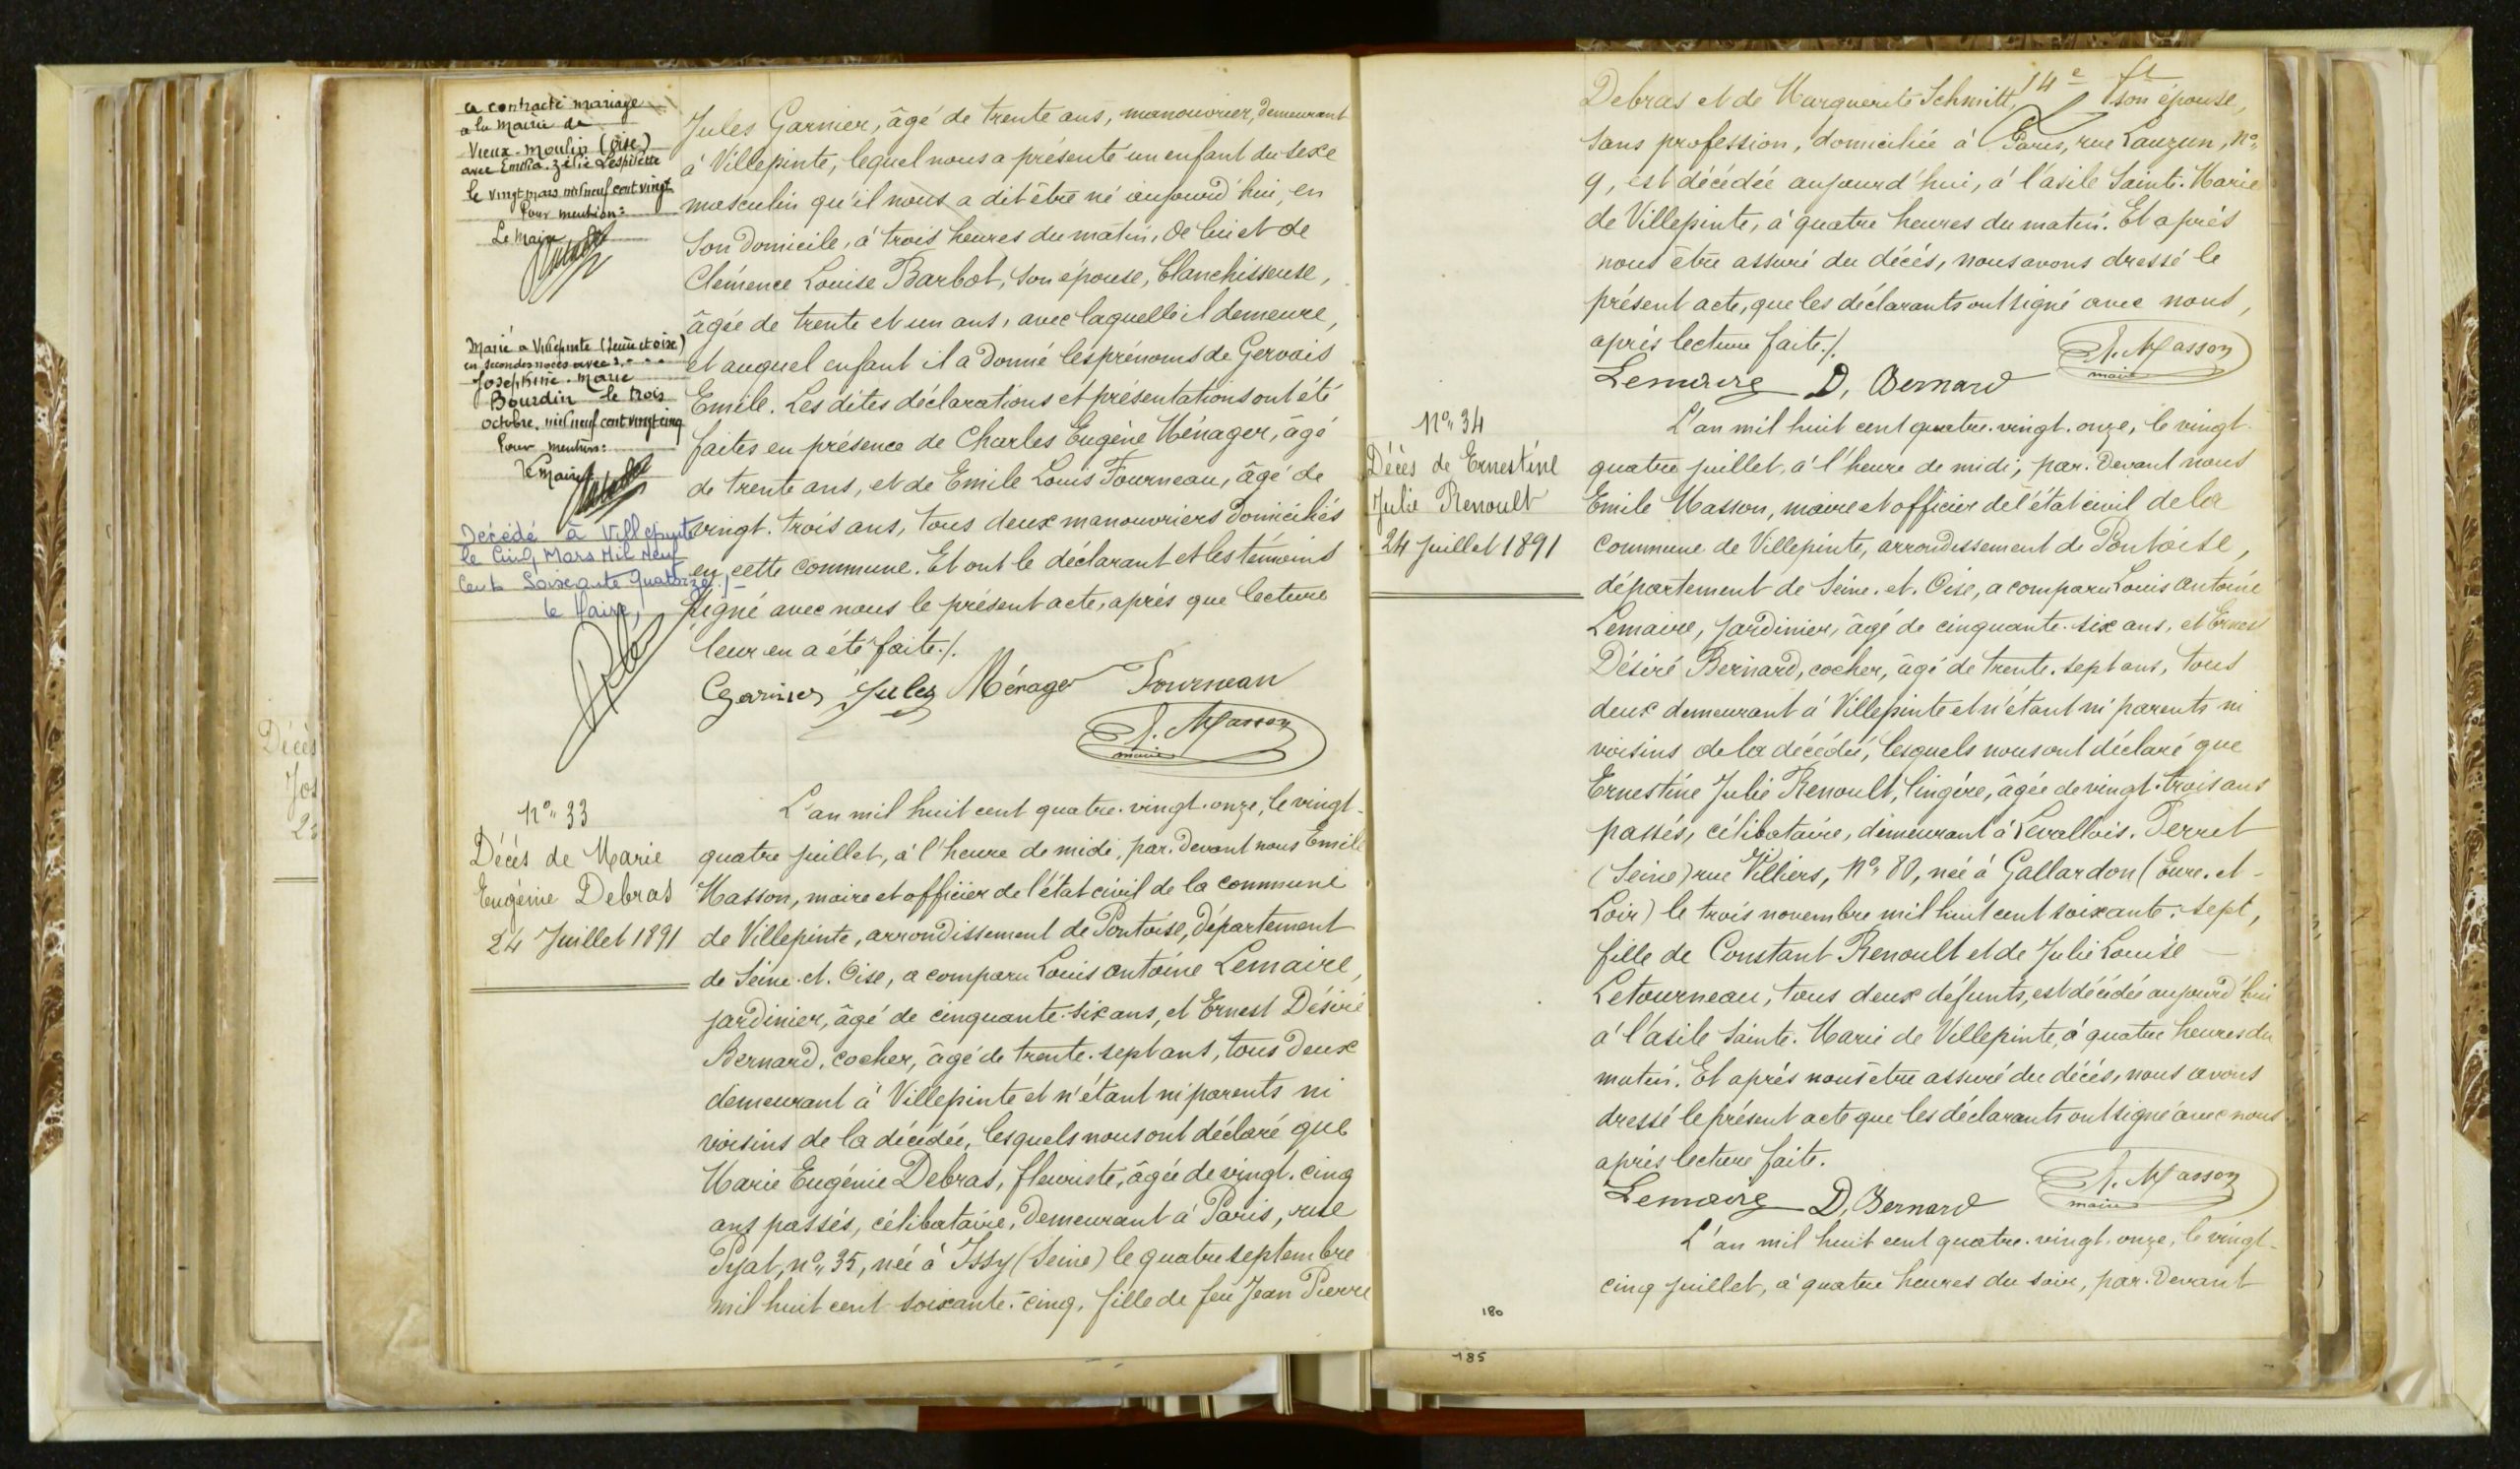 a contracté mariage
a la Mairie de
Vieux-Moulin (Oise)
avec Emilia Zélie Lespilette
le vingt mars mil neuf cent vingt
Pour mention:
Le Maire
Marié à Villepinte (Seine et oise)
en secondes noces avec
Joséphine Marie
Bourdin le trois
octobre mil neuf cent vingt cinq
Pour mention:
Le Maire
Décédé à Villepinte
le Cinq Mars Mil Neuf
Cent Soixante Quatorze./-
le Maire,
Jules Garnier, âgé de trente ans, manouvrier, demeurant
à Villepinte, lequel nous a présenté un enfant du sexe
masculin qu'il nous a dit être né aujourd'hui, en
son domicile, à trois heures du matin, de lui et de
Clémence Louise Barbot, son épouse, blanchisseuse,
âgée de trente et un ans, avec laquelle il demeure,
et auquel enfant il a donné les prénoms de Gervais
Emile. Les dites déclarations et présentations ont été
faites en présence de Charles Eugène Ménager, âgé
de trente ans, et de Emile Louis Fourneau, âgé de
vingt-trois ans, tous deux manouvriers domiciliés
en cette commune. Et ont le déclarant et les témoins
signé avec nous le présent acte, après que lecture
leur en a été faite./.
Garnier Jules Ménager Fourneau
E. Masson
maire
No 33
Décès de Marie
Eugénie Debras
24 Juillet 1891
L'an mil huit cent quatre-vingt-onze, le vingt-
quatre juillet, à l'heure de midi, par-devant nous Emile
Masson, maire et officier de l'état civil de la commune
de Villepinte, arrondissement de Pontoise, département
de Seine-et-Oise, a comparu Louis Antoine Lemaire,
jardinier, âgé de cinquante-six ans, et Ernest Désiré
Bernard, cocher, âgé de trente-sept ans, tous deux
demeurant à Villepinte et n'étant ni parents ni
voisins de la décédée, lesquels nous ont déclaré que
Marie Eugénie Debras, fleuriste, âgée de vingt-cinq
ans passés, célibataire, demeurant à Paris, rue
Pyat, no 35, née à Issy (Seine) le quatre septembre
mil huit cent soixante-cinq, fille de feu Jean Pierre
Décès
Jos
14e ft
Debras et de Marguerite Schmitt, son épouse,
sans profession, domiciliée à Paris, rue Lauzun, No
9, est décédée aujourd'hui, à l'asile Sainte-Marie
de Villepinte, à quatre heures du matin. Et après
nous être assuré du décès, nous avons dressé le
présent acte, que les déclarants ont signé avec nous,
après lecture faite./.
Lemaire D, Bernard E. Masson
maire
No 34
Décès de Ernestine
Julie Renoult
24 Juillet 1891
L'an mil huit cent quatre-vingt-onze, le vingt-
quatre juillet, à l'heure de midi, par-devant nous
Emile Masson, maire et officier de l'état civil de la
commune de Villepinte, arrondissement de Pontoise,
département de Seine-et-Oise, a comparu Louis Antoine
Lemaire, jardinier, âgé de cinquante-six ans, et Ernest
Désiré Bernard, cocher, âgé de trente-sept ans, tous
deux demeurant à Villepinte et n'étant ni parents ni
voisins de la décédée, lesquels nous ont déclaré que
Ernestine Julie Renoult, lingère, âgée de vingt-trois ans
passés, célibataire, demeurant à Levallois-Perret
(Seine) rue Villiers, No 80, née à Gallardon (Eure-et-
Loir) le trois novembre mil huit cent soixante-sept,
fille de Constant Renoult et de Julie Louise
Letourneau, tous deux défunts, est décédée aujourd'hui
à l'asile Sainte-Marie de Villepinte, à quatre heures du
matin. Et après nous être assuré du décès, nous avons
dressé le présent acte que les déclarants ont signé avec nous
après lecture faite.
Lemaire D, Bernard E. Masson
maire
L'an mil huit cent quatre-vingt-onze, le vingt-
cinq juillet, à quatre heures du soir, par-devant
180
185